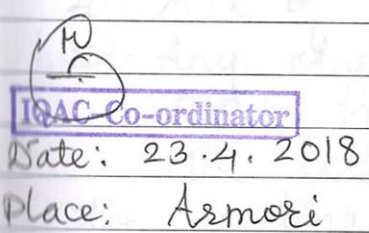 IQAC Co-ordinator
Date: 23.4.2018
Place: Armori